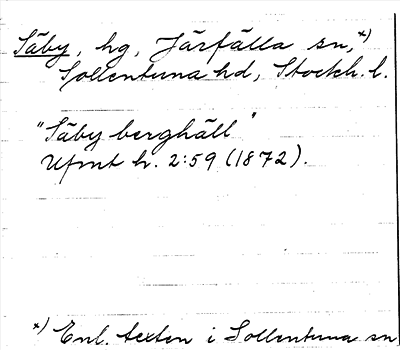 Säby, hg, Järfälla sn,*)
Sollentuna hd, Stockh. l.
"Säby berghäll"
Ufmt h. 2:59 (1872).
*) Enl. texten i Sollentuna sn